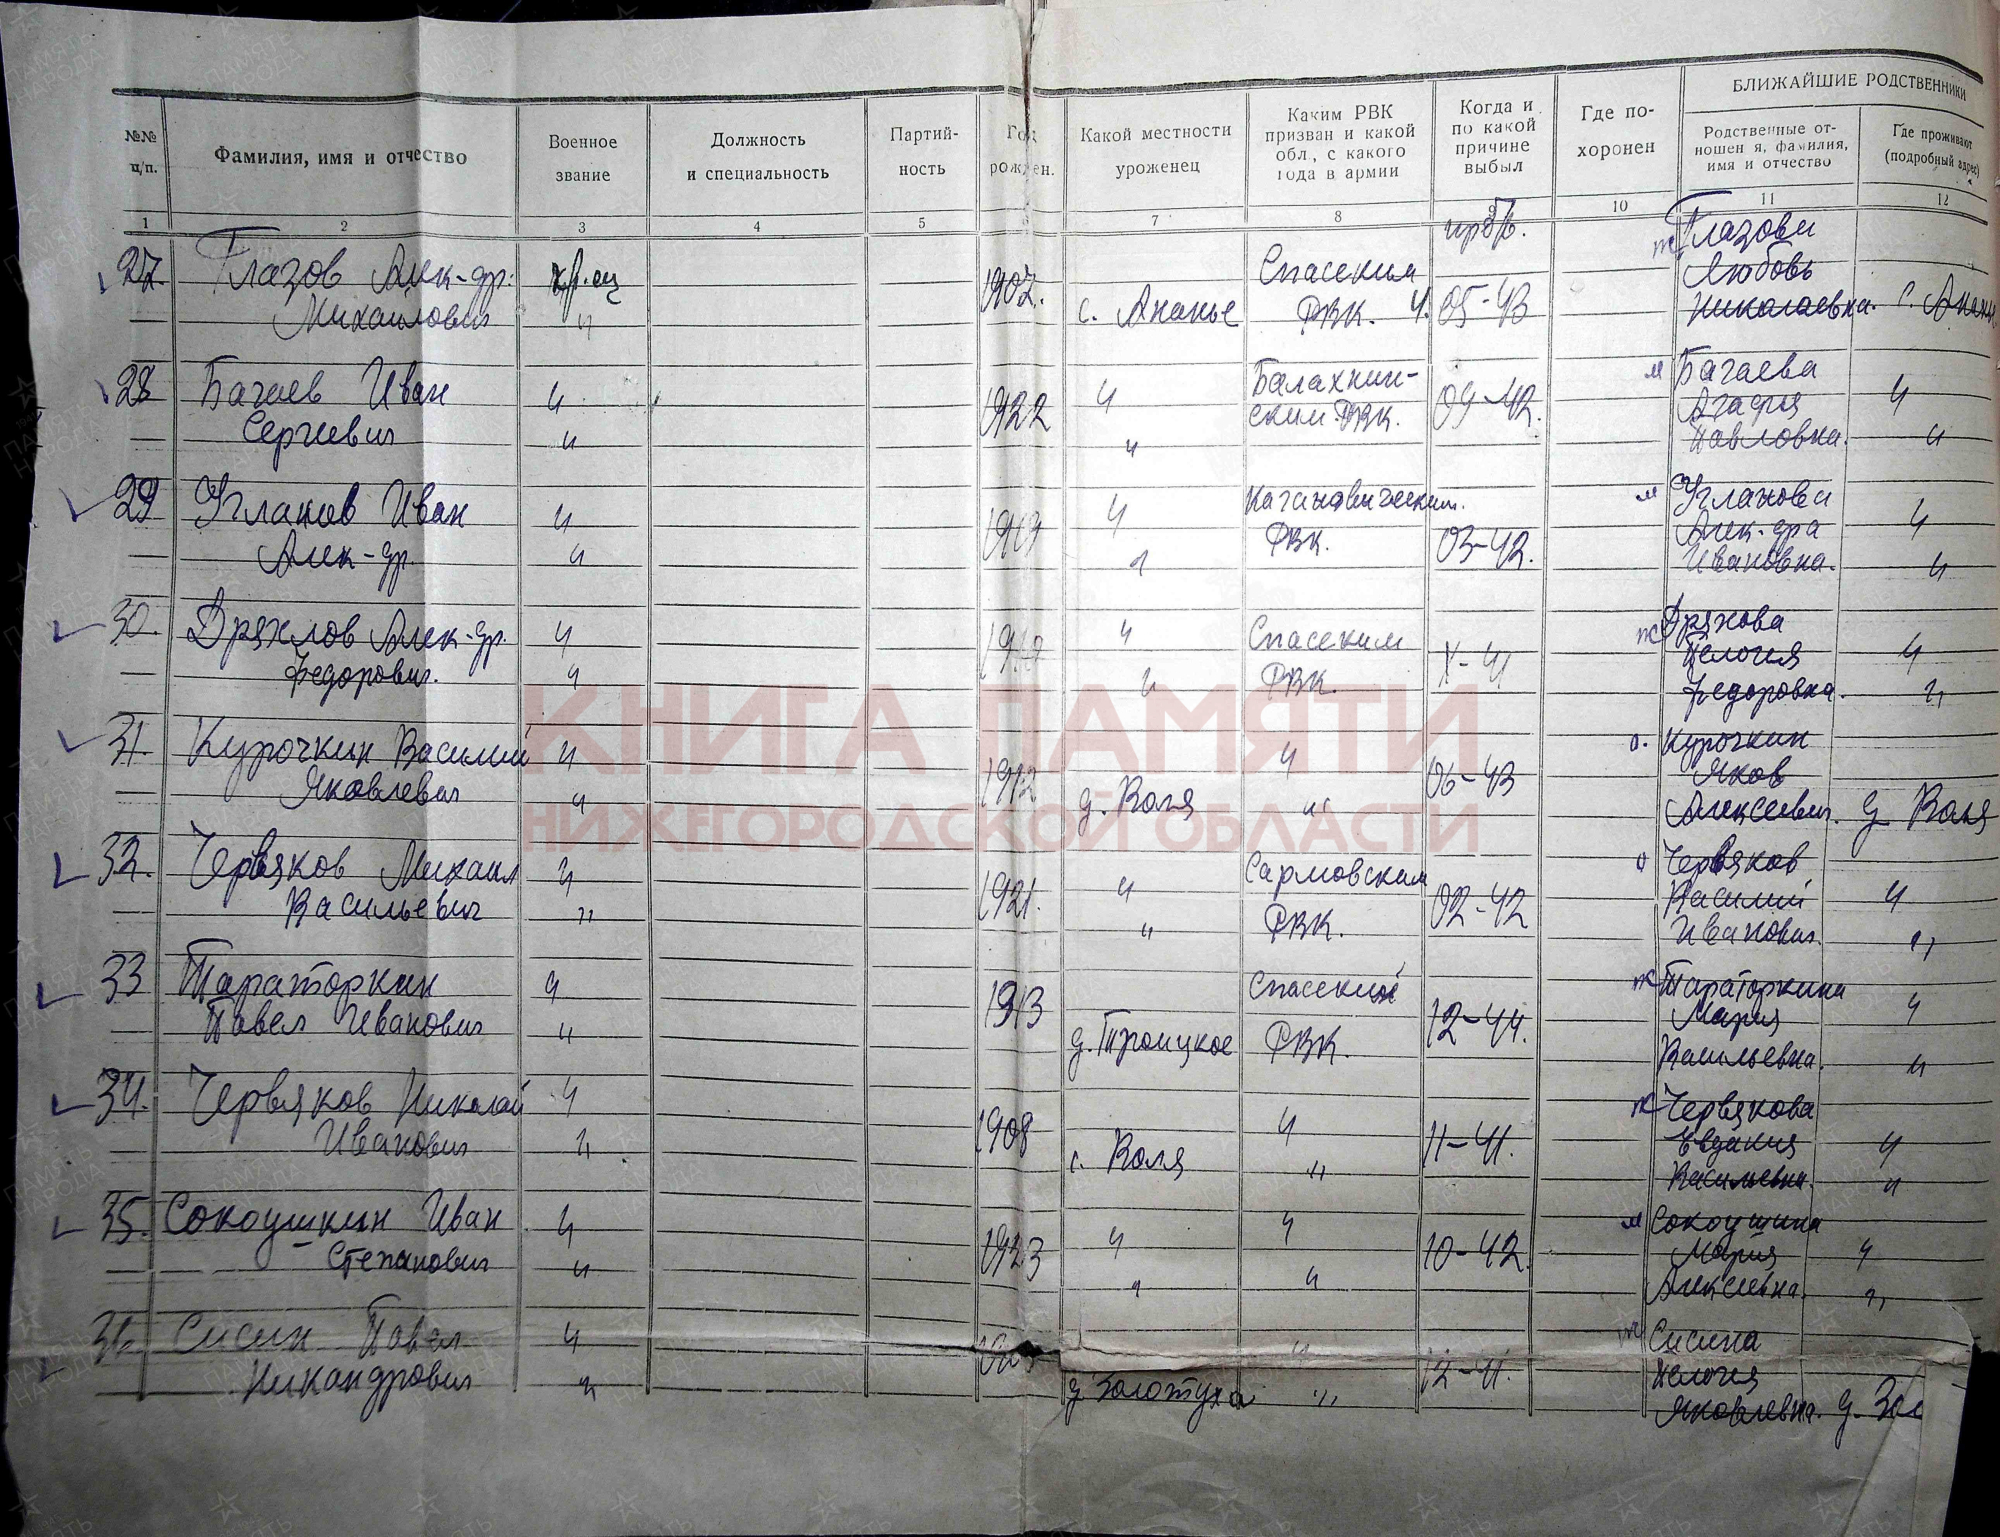 БЛИЖАЙШИЕ РОДСТВЕННИКИ
№№ п/п.
Фамилия, имя и отчество
Военное звание
Должность и специальность
Партий-ность
Год рожден.
Какой местности уроженец
Каким РВК призван и какой обл., с какого года в армии
Когда и по какой причине выбыл
Где по-хоронен
Родственные от-ношен я, фамилия, имя и отчество
Где проживают (подробный адрес)
1 2 3 4 5 6 7 8 9 10 11 12
27. Глазов Алек-др. кр.ец 1907. с. Ананье Спаским РВК. Ч. пр б/в. 05-43 ж Глазова Любовь Николаевна. с. Анань
Михайлович "
28 Багаев Иван " 1922 " Балахнин-ским РВК. 04-42. м Багаева Агафья Павловна. "
Сергеевич " " "
29 Угланов Иван " 1919 " Кагановическим. РВК. 03-42. м Угланова Алек-дра Ивановна. "
Алек-др. " " "
30. Дряхлов Алек-др. " " Спаским РВК. X-41 ж Дряхова Пелогия Федоровна. "
Федорович. " " "
31. Курочкин Василий " 1912 д. Воля " 06-43 о. Курочкин Яков Алексеевич. д Воля
Яковлевич " "
32. Червяков Михаил " 1921. " Сармовским РВК. 02-42 о Червяков Василий Иванович. "
Васильевич " " "
33 Тараторкин " 1913 д. Троицкое Спаский РВК. 12-44. ж Тараторкина Мария Васильевна. "
Павел Иванович " "
34. Червяков Николай " 1908 с. Воля " 11-41. ж Червякова Евдакия Васильевна. "
Иванович " " "
35. Сокоушкин Иван " 1923 " " 10-42. м Сокоушина Мария Алексеевна. "
Степанович " " " "
36 Сисин Павел " д Золотуха " 12-41. ж Сисина Пелогия Яковлевна. д. Зол
Никандрович " "
КНИГА ПАМЯТИ
НИЖЕГОРОДСКОЙ ОБЛАСТИ